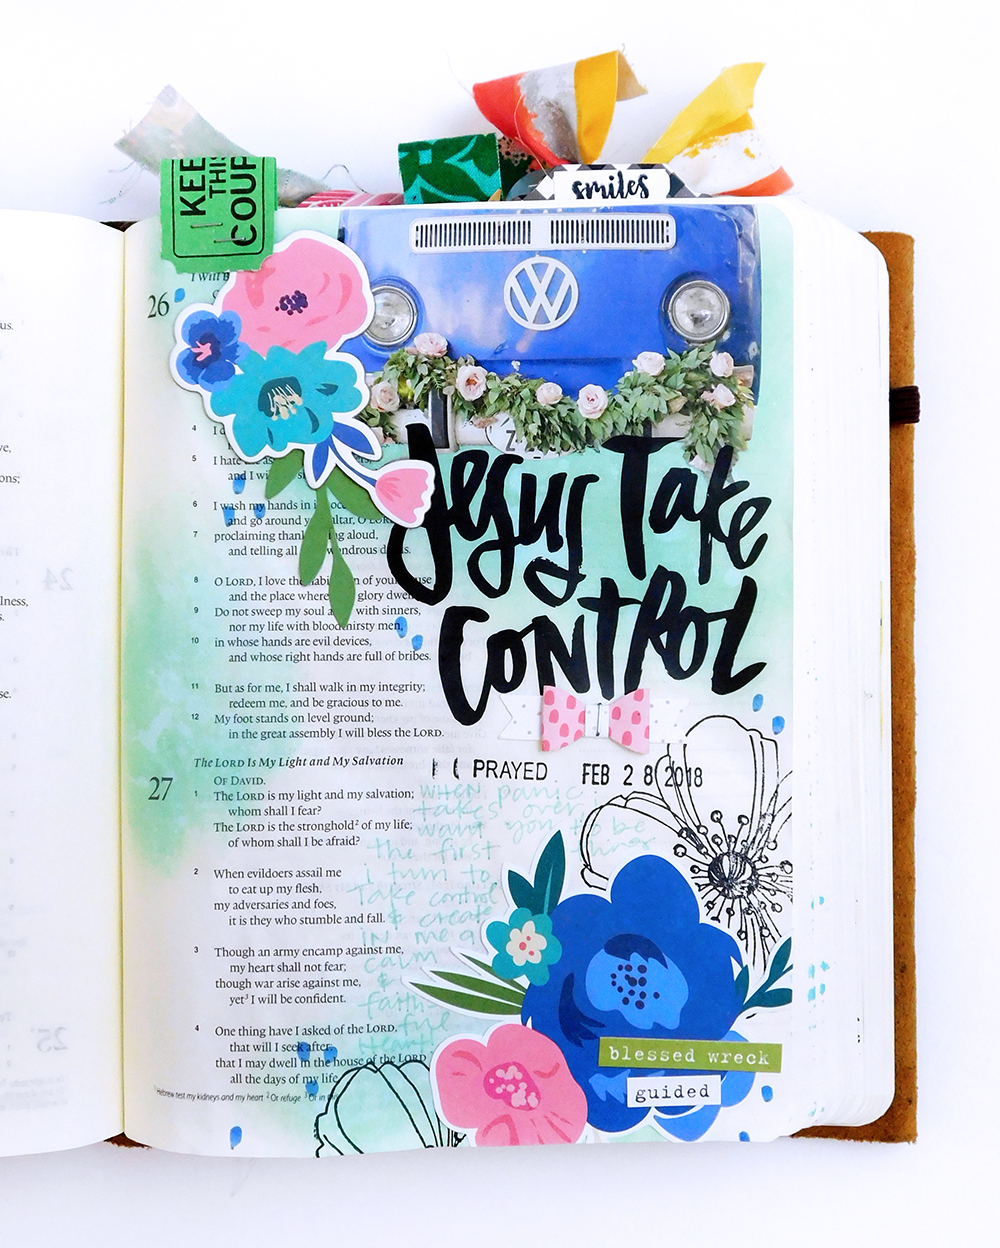 KEE
THIS
COUP
smiles
26
4
5 I hate
and I wi
6 I wash my hands in
and go around altar, O LORD
7 proclaiming aloud,
and telling all wondrous
8 O LORD, I love the of your house
and the place where glory
9 Do not sweep my soul with sinners,
nor my life with bloodthirsty men,
10 in whose hands are evil devices,
and whose right hands are full of bribes.
11 But as for me, I shall walk in my integrity;
redeem me, and be gracious to me.
12 My foot stands on level ground;
in the great assembly I will bless the LORD.
Jesus Take
Control
The LORD Is My Light and My Salvation
27 OF DAVID.
I PRAYED FEB 28 2018
1 The LORD is my light and my salvation;
whom shall I fear?
The LORD is the stronghold² of my life;
of whom shall I be afraid?
2 When evildoers assail me
to eat up my flesh,
my adversaries and foes,
it is they who stumble and fall.
3 Though an army encamp against me,
my heart shall not fear;
though war arise against me,
yet³ I will be confident.
4 One thing have I asked of the LORD,
that will I seek after:
that I may dwell in the house of the LORD
all the days of my life,
Hebrew test my kidneys and my heart ² Or refuge ³ Or in
when panic
takes over
want you to be
the first thing
i turn to
Take control
& create
in me a
calm
&
faith
blessed wreck
guided